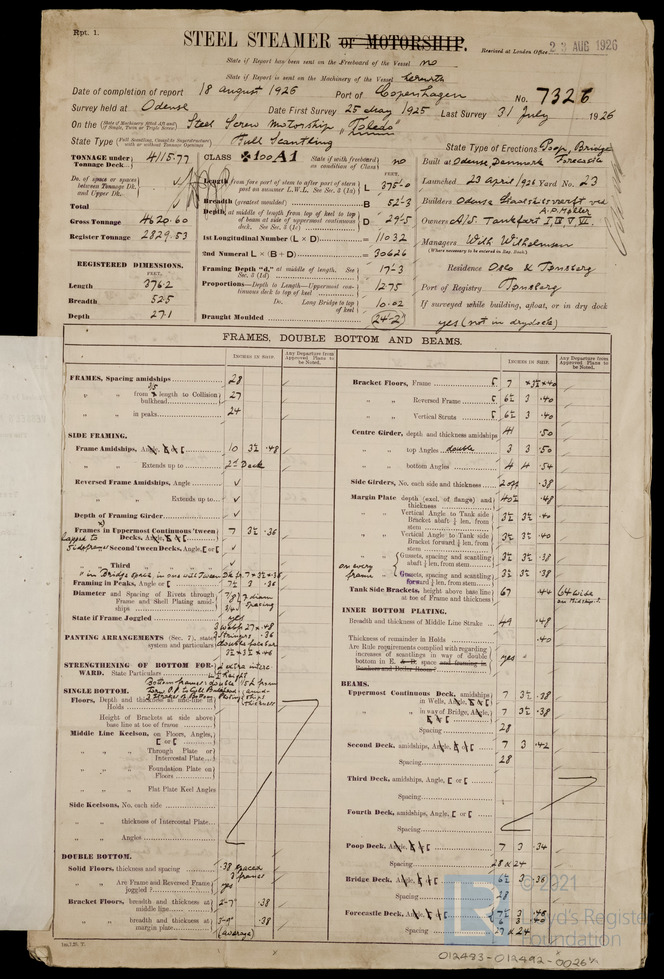 Rpt. 1.
STEEL STEAMER or MOTORSHIP.
Received at London Office 23 AUG 1926
State if Report has been sent on the Freeboard of the Vessel no
State if Report is sent on the Machinery of the Vessel
Date of completion of report 18 august 1926 Port of Copenhagen No. 7326
Survey held at Odense Date First Survey 25 May 1925 Last Survey 31 July 1926
On the Steel Screw Motorship "Toledo"
State Type Full Scantling State Type of Erections Poop, Bridge Forecastle
TONNAGE under Tonnage Deck 4115.77
CLASS ✠100A1 State if with freeboard as condition of Class no
Built at Odense, Denmark
Do. of space or spaces between Tonnage Dk. and Upper Dk.
Length from fore part of stem to after part of stern post on summer L.W.L. See Sec. 3 (1a) L 375'-0
Launched 23 April 1926 Yard No. 23
Total
Breadth (greatest moulded) B 52'-3
Builders Odense Staalskibsværft ved A.P. Möller
Gross Tonnage 4620.60
Depth, at middle of length from top of keel to top of beam at side of uppermost continuous deck. See Sec. 3 (1c) D 29'-5
Owners A/S Tankfart I, IV, V, VI.
Register Tonnage 2829.53
1st Longitudinal Number (L × D) = 11032
Managers Wilh Wilhelmsen
(Where necessary to be entered in Reg. Book)
2nd Numeral L × (B + D) = 30626
REGISTERED DIMENSIONS.
FEET.
Framing Depth "d," at middle of length. See Sec. 3 (1d) 17'-3
Residence Oslo & Tonsberg
Length 376.2
Proportions—Depth to Length—Uppermost continuous deck to top of keel 12.75
Port of Registry Tonsberg
Breadth 52.5
Do. Long Bridge to top of keel 10.02
If surveyed while building, afloat, or in dry dock
Depth 27.1
Draught Moulded (24'-2")
yes (not in drydock)
FRAMES, DOUBLE BOTTOM AND BEAMS.
INCHES IN SHIP.
Any Departure from Approved Plans to be Noted.
INCHES IN SHIP.
Any Departure from Approved Plans to be Noted.
FRAMES, Spacing amidships 28
" " from 3/5 length to Collision bulkhead 27
" " in peaks 24
SIDE FRAMING.
Frame Amidships, Angle, [ or [ 10 3½ .48
" " Extends up to 2nd Deck
Reversed Frame Amidships, Angle
" " Extends up to
Depth of Framing Girder
Frames in Uppermost Continuous 'tween Decks, Angle, [ or [ 7 3½ .36
Second 'tween Decks, Angle, [ or [
Third " "
Framing in Peaks, Angle or [ 7½ 3½ .36
Diameter and Spacing of Rivets through Frame and Shell Plating amidships
State if Frame Joggled yes
PANTING ARRANGEMENTS (Sec. 7), state system and particulars
STRENGTHENING OF BOTTOM FORWARD. State Particulars
SINGLE BOTTOM.
Floors, Depth and thickness at mid-line in Holds
Height of Brackets at side above base line at toe of frame
Middle Line Keelson, on Floors, Angles, [ or [
" " Through Plate or Intercostal Plate
" " Foundation Plate on Floors
" " Flat Plate Keel Angles
Side Keelsons, No. each side
" " thickness of Intercostal Plate
" " Angles
DOUBLE BOTTOM.
Solid Floors, thickness and spacing .38 spaced 3 frames
" " Are Frame and Reversed Frame joggled? yes
Bracket Floors, breadth and thickness at middle line 2'-7" .38
" " breadth and thickness at margin plate 3'-9" .38
(average)
Bracket Floors, Frame 7 3½ .40
" " Reversed Frame 6½ 3 .40
" " Vertical Struts 6½ 3 .40
Centre Girder, depth and thickness amidships 41 .50
" " top Angles double 3 3 .50
" " bottom Angles 4 4 .54
Side Girders, No. each side and thickness 2 off .38
Margin Plate depth (excl. of flange) and thickness 40½ .48
" " Vertical Angle to Tank side Bracket abaft ¼ len. from stem 3½ 3½ .40
" " Vertical Angle to Tank side Bracket forward ¼ len. from stem 3½ 3½ .40
on every frame
" " Gussets, spacing and scantling abaft ¼ len. from stem 3½ 3½ .38
" " Gussets, spacing and scantling forward ¼ len. from stem 3½ 3½ .38
Tank Side Brackets, height above base line at toe of Frame and thickness 67 .44 64 wide
INNER BOTTOM PLATING.
Breadth and thickness of Middle Line Strake 49 .48
Thickness of remainder in Holds .40
Are Rule requirements complied with regarding increases of scantlings in way of double bottom in E. & B. space and framing in Bunkers and Boiler Room? yes
BEAMS.
Uppermost Continuous Deck, amidships in Wells, Angle, [ or [ 7 3½ .38
" " in way of Bridge, Angle, [ or [ 7 3½ .38
Spacing 28
Second Deck, amidships, Angle, [ or [ 7 3 .42
Spacing 28
Third Deck, amidships, Angle, [ or [
Spacing
Fourth Deck, amidships, Angle, [ or [
Spacing
Poop Deck, Angle, [ or [ 7 3 .34
Spacing 28 & 24
Bridge Deck, Angle, [ or [ 6½ 3 .36
Spacing 28
Forecastle Deck, Angle, [ or [ 7½ 3
Spacing 27 & 24
© 2021
Lloyd's Register
Foundation
012483-012492-0026